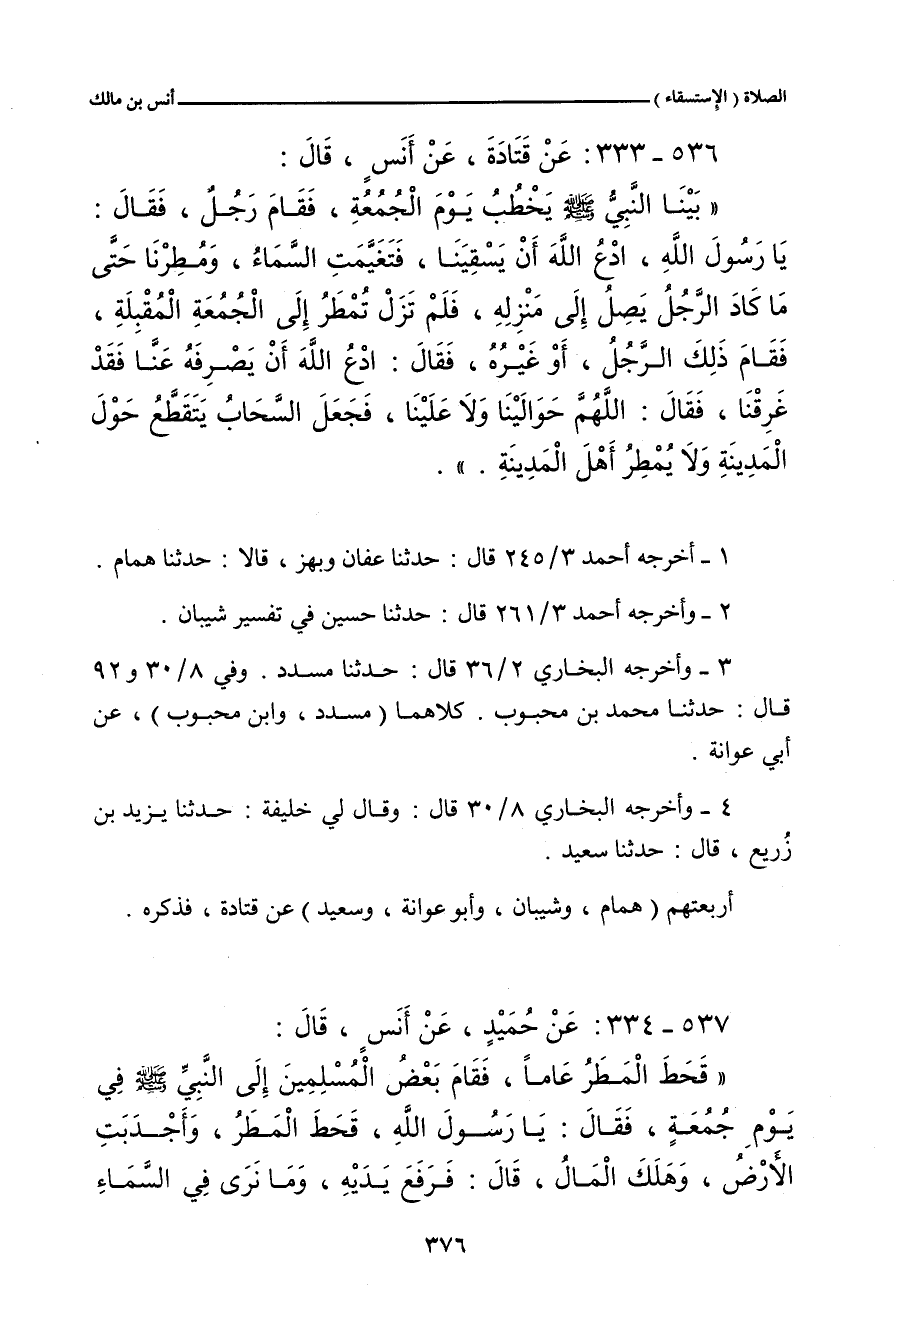 الصلاة ( الإستسقاء ) ــــــــــــــــــــ أنس بن مالك
٥٣٦ - ٣٣٣: عَنْ قَتَادَةَ ، عَنْ أَنَسٍ ، قَالَ :
« بَيْنَا النَّبِيُّ ﷺ يَخْطُبُ يَوْمَ الْجُمُعَةِ ، فَقَامَ رَجُلٌ ، فَقَالَ :
يَا رَسُولَ اللَّهِ ، ادْعُ اللَّهَ أَنْ يَسْقِيَنَا ، فَتَغَيَّمَتِ السَّمَاءُ ، وَمُطِرْنَا حَتَّى
مَا كَادَ الرَّجُلُ يَصِلُ إِلَى مَنْزِلِهِ ، فَلَمْ تَزَلْ تُمْطَرُ إِلَى الْجُمُعَةِ الْمُقْبِلَةِ ،
فَقَامَ ذَلِكَ الرَّجُلُ ، أَوْ غَيْرُهُ ، فَقَالَ : ادْعُ اللَّهَ أَنْ يَصْرِفَهُ عَنَّا فَقَدْ
غَرِقْنَا ، فَقَالَ : اللَّهُمَّ حَوَالَيْنَا وَلَا عَلَيْنَا ، فَجَعَلَ السَّحَابُ يَتَقَطَّعُ حَوْلَ
الْمَدِينَةِ وَلَا يُمْطِرُ أَهْلَ الْمَدِينَةِ . » .
١ - أخرجه أحمد ٢٤٥/٣ قال : حدثنا عفان وبهز ، قالا : حدثنا همام .
٢ - وأخرجه أحمد ٢٦١/٣ قال : حدثنا حسين في تفسير شيبان .
٣ - وأخرجه البخاري ٣٦/٢ قال : حدثنا مسدد . وفي ٣٠/٨ و ٩٢
قال : حدثنا محمد بن محبوب . كلاهما ( مسدد ، وابن محبوب ) ، عن
أبي عوانة .
٤ - وأخرجه البخاري ٣٠/٨ قال : وقال لي خليفة : حدثنا يزيد بن
زُريع ، قال : حدثنا سعيد .
أربعتهم ( همام ، وشيبان ، وأبو عوانة ، وسعيد ) عن قتادة ، فذكره .
٥٣٧ - ٣٣٤: عَنْ حُمَيْدٍ ، عَنْ أَنَسٍ ، قَالَ :
« قَحَطَ الْمَطَرُ عَاماً ، فَقَامَ بَعْضُ الْمُسْلِمِينَ إِلَى النَّبِيِّ ﷺ فِي
يَوْمِ جُمُعَةٍ ، فَقَالَ : يَا رَسُولَ اللَّهِ ، قَحَطَ الْمَطَرُ ، وَأَجْدَبَتِ
الْأَرْضُ ، وَهَلَكَ الْمَالُ ، قَالَ : فَرَفَعَ يَدَيْهِ ، وَمَا نَرَى فِي السَّمَاءِ
٣٧٦